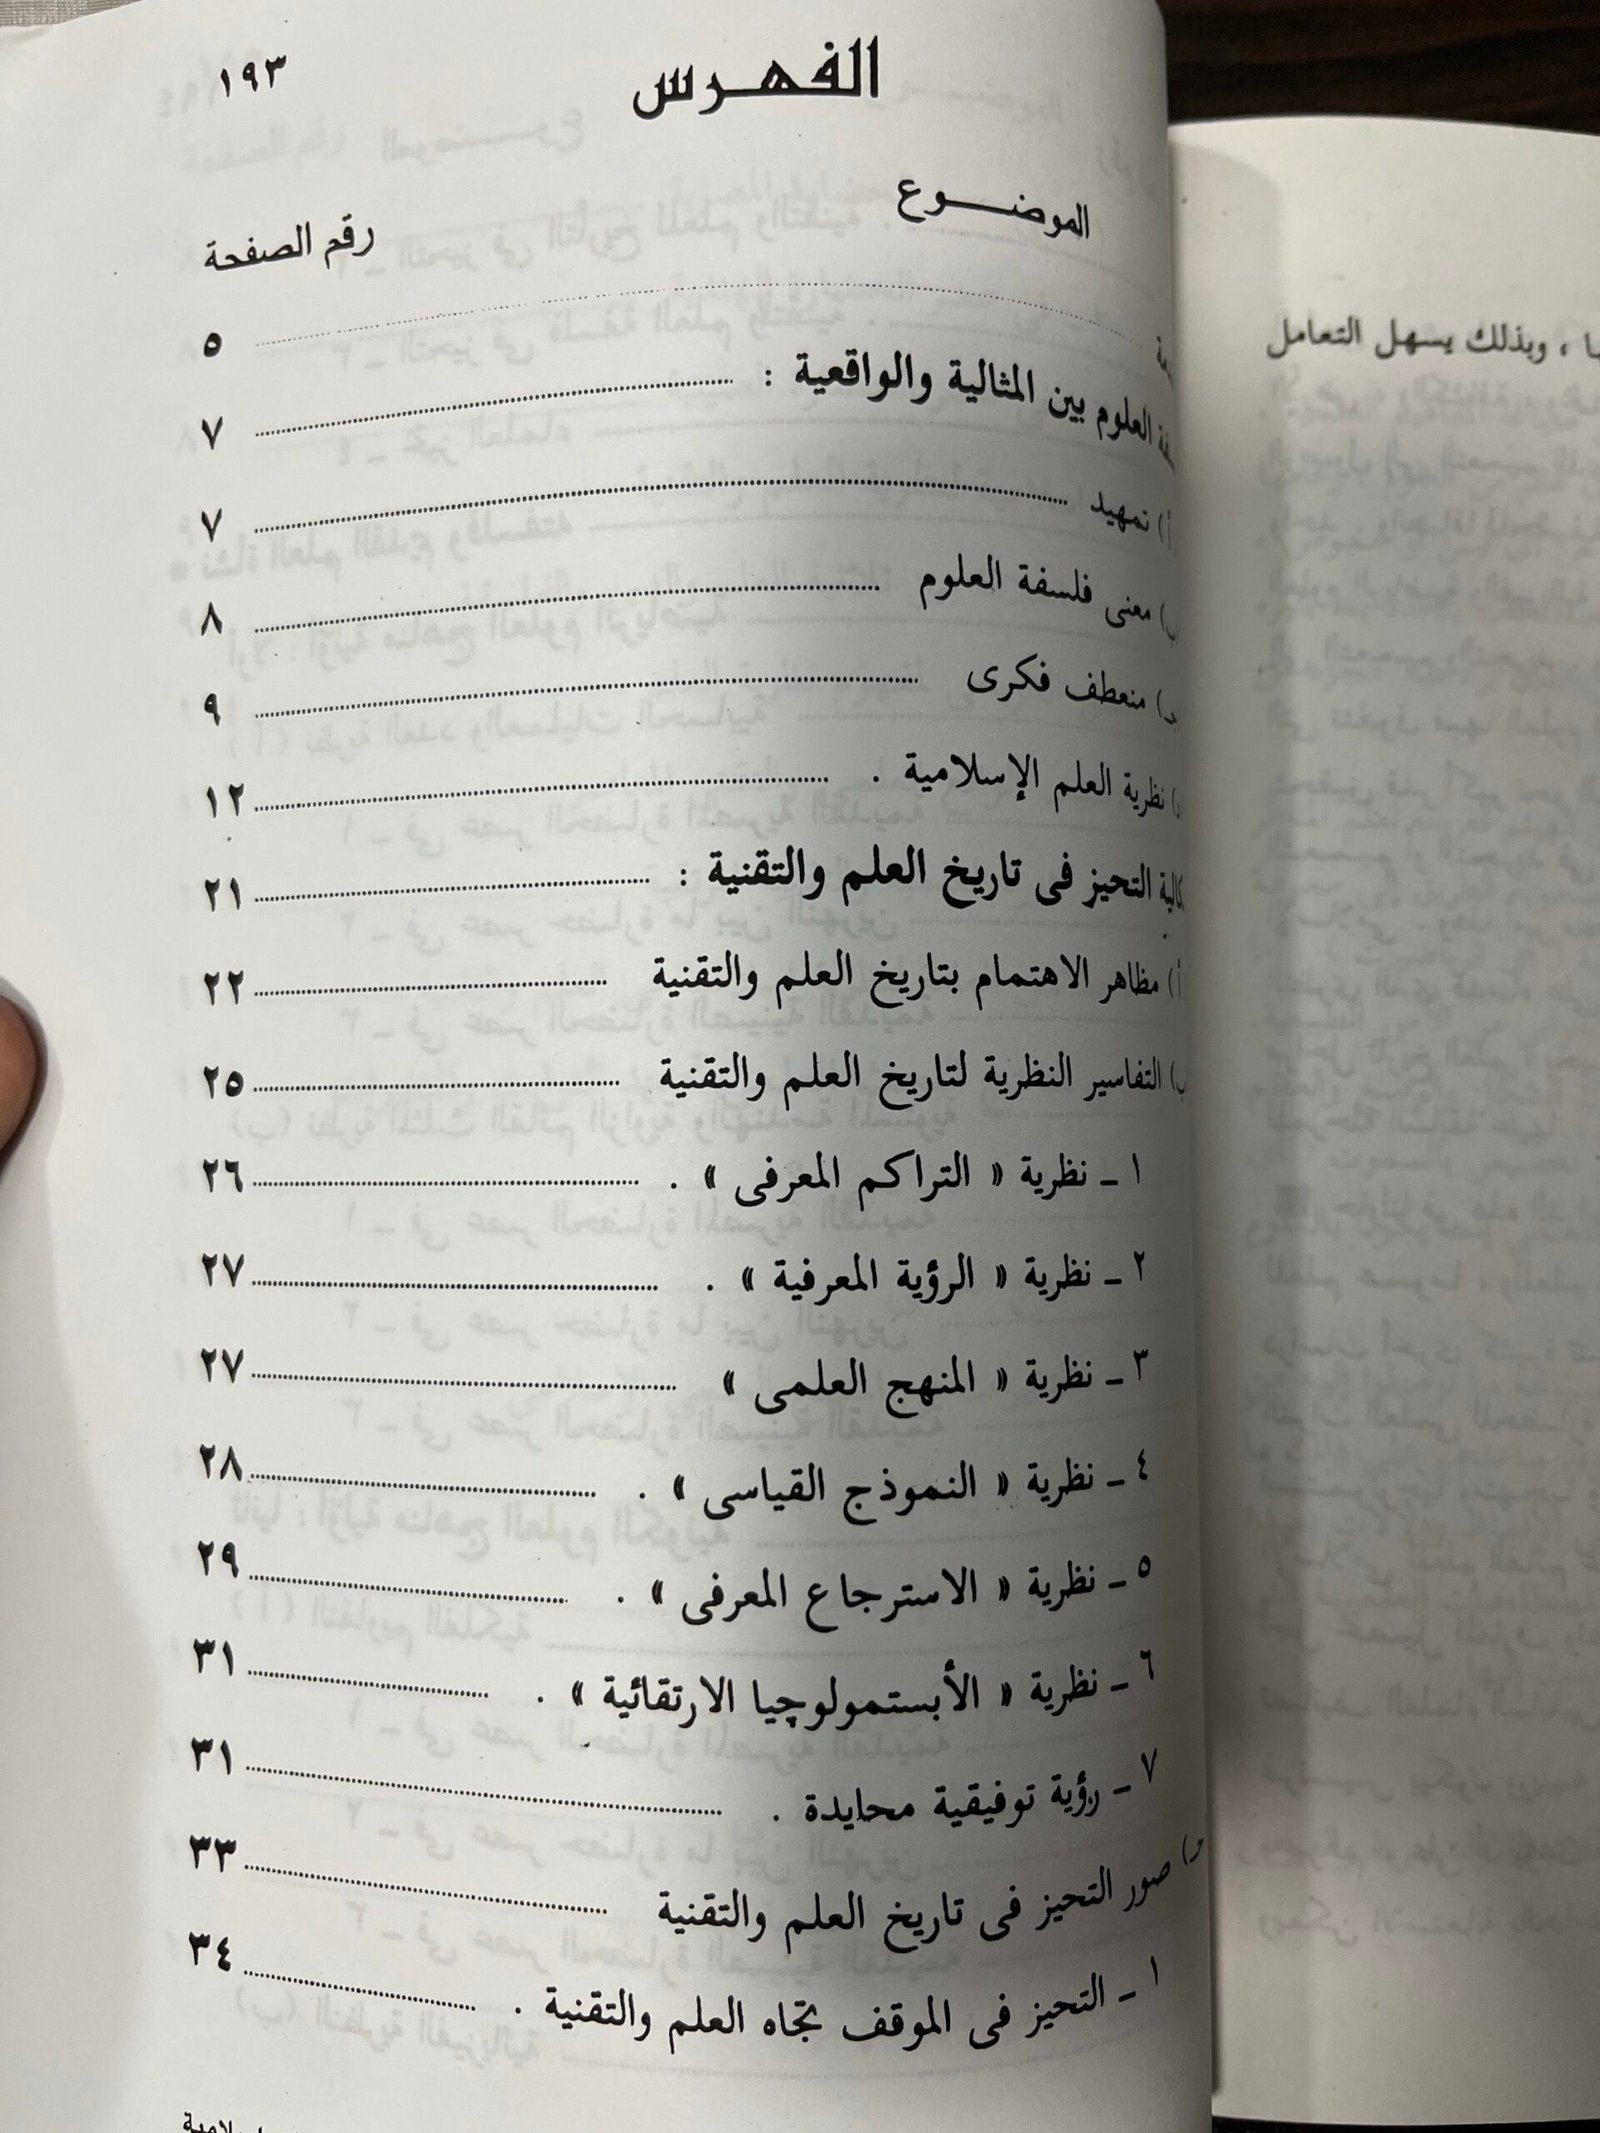 الفهرس ١٩٣
الموضوع رقم الصفحة
٥
العلوم بين المثالية والواقعية : ٧
أ) تمهيد ٧
معنى فلسفة العلوم ٨
منعطف فكرى ٩
نظرية العلم الإسلامية . ١٢
التحيز فى تاريخ العلم والتقنية : ٢١
أ) مظاهر الاهتمام بتاريخ العلم والتقنية ٢٢
ب) التفاسير النظرية لتاريخ العلم والتقنية ٢٥
١ ـ نظرية « التراكم المعرفى » . ٢٦
٢ ـ نظرية « الرؤية المعرفية » . ٢٧
٣ ـ نظرية « المنهج العلمى » ٢٧
٤ ـ نظرية « النموذج القياسى » . ٢٨
٥ ـ نظرية « الاسترجاع المعرفى » . ٢٩
٦ ـ نظرية « الأبستمولوچيا الارتقائية » . ٣١
٧ ـ رؤية توفيقية محايدة . ٣١
حـ) صور التحيز فى تاريخ العلم والتقنية ٣٣
١ ـ التحيز فى الموقف تجاه العلم والتقنية . ٣٤
، وبذلك يسهل التعامل